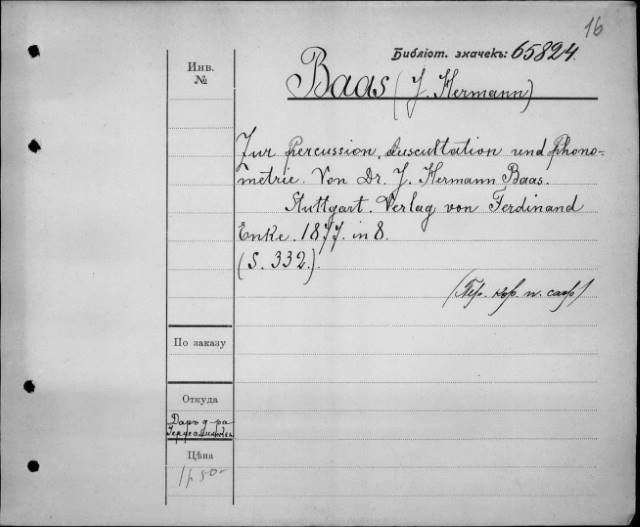 16
Библіот. значекъ: 65824.
Инв.
№
Baas (J. Hermann)
Zur Percussion, Auscultation und Phono-
metrie. Von Dr. J. Hermann Baas.
Stuttgart. Verlag von Ferdinand
Enke. 1877. in 8.
(S. 332.).
По заказу
Откуда
Даръ д-ра
Цѣна
1р 50